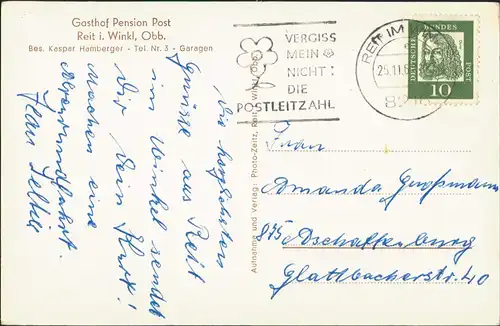 Gasthof Pension Post
Reit i. Winkl, Obb.
Bes. Kasper Hamberger - Tel. Nr. 3 - Garagen
VERGISS
MEIN
NICHT:
DIE
POSTLEITZAHL
REIT IM
25.11.6
DEUTSCHE
BUNDES
POST
10
Die herzlichsten
Grüsse aus Reit
im Winkel sendet
Dir Dein Kurt!
Machen eine
Alpenrundfahrt.
Aufnahme und Verlag: Photo-Zeitz, Reit i. Winkl/Obb.
Frau
Amanda Großmann
875 Aschaffenburg
Glattbacherstr. 40